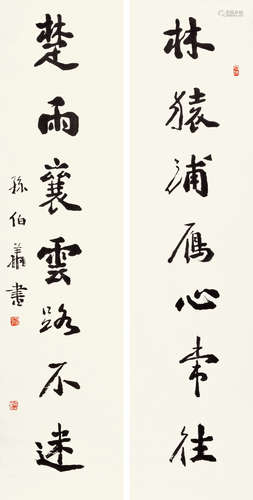 林猿浦雁心常往
楚雨襄雲路不迷
孫伯翔書